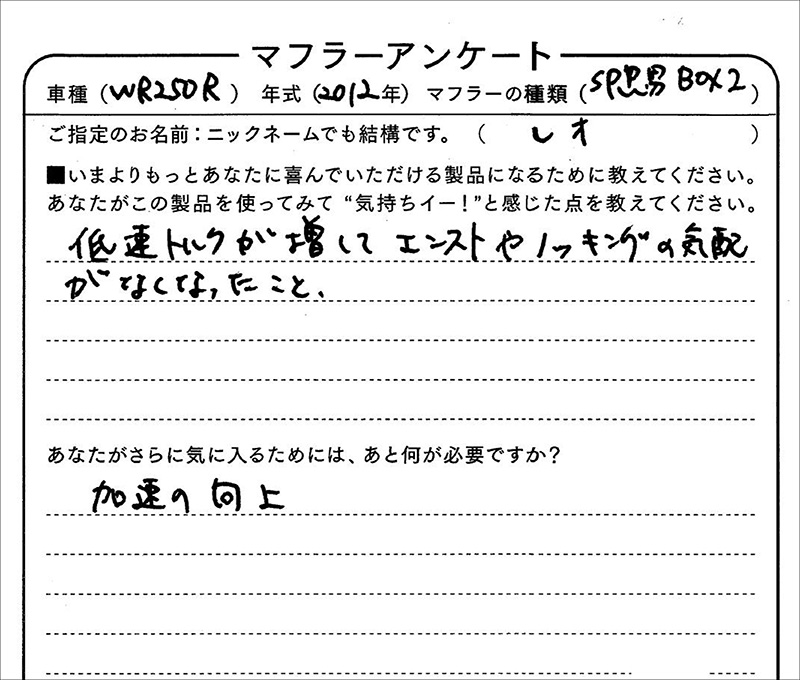 マフラーアンケート
車種（WR250R） 年式（2012年） マフラーの種類（SP忠男 BOX2）
ご指定のお名前：ニックネームでも結構です。（ レオ ）
■いまよりもっとあなたに喜んでいただける製品になるために教えてください。
あなたがこの製品を使ってみて“気持ちイー！”と感じた点を教えてください。
低速トルクが増してエンストやノッキングの気配
がなくなったこと、
あなたがさらに気に入るためには、あと何が必要ですか？
加速の向上